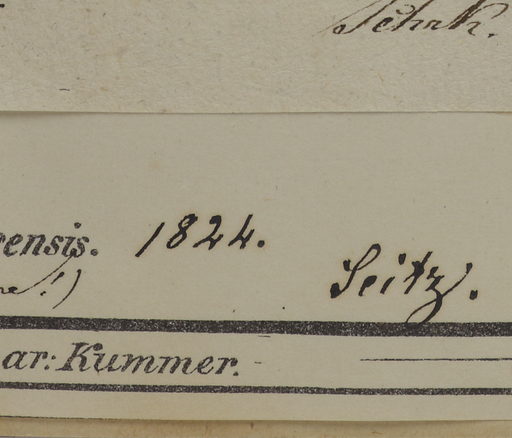 Schrk.
ensis. 1824.
Seitz.
ar: Kummer.